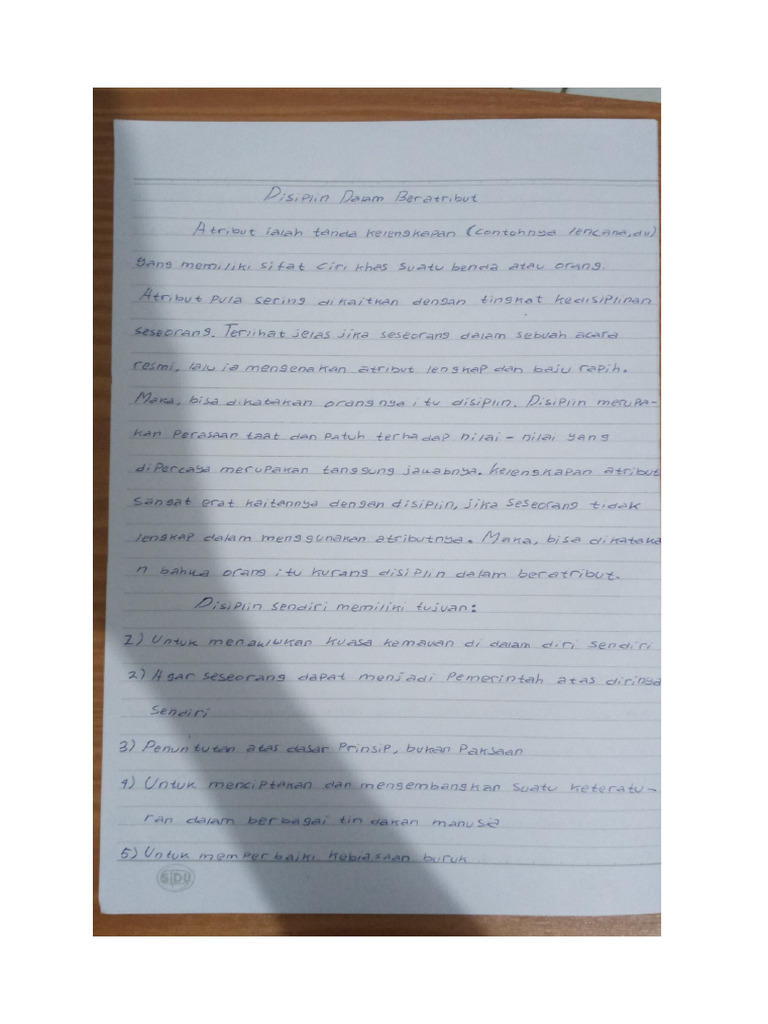 Disiplin Dalam Beratribut
Atribut ialah tanda kelengkapan (contohnya lencana, dll)
yang memiliki sifat ciri khas suatu benda atau orang.
Atribut pula sering dikaitkan dengan tingkat kedisiplinan
seseorang. Terlihat jelas jika seseorang dalam sebuah acara
resmi, lalu ia mengenakan atribut lengkap dan baju rapih.
Maka, bisa dikatakan orangnya itu disiplin. Disiplin merupa-
kan perasaan taat dan patuh terhadap nilai - nilai yang
dipercaya merupakan tanggung jawabnya. Kelengkapan atribut
sangat erat kaitannya dengan disiplin, jika seseorang tidak
lengkap dalam menggunakan atributnya. Maka, bisa dikataka
n bahwa orang itu kurang disiplin dalam beratribut.
Disiplin sendiri memiliki tujuan:
1) Untuk menaklukan kuasa kemauan di dalam diri sendiri
2) Agar seseorang dapat menjadi pemerintah atas dirinya
sendiri
3) Penuntutan atas dasar prinsip, bukan paksaan
4) Untuk menciptakan dan mengembangkan suatu keteratu-
ran dalam berbagai tindakan manusia
5) Untuk memperbaiki kebiasaan buruk
SiDU